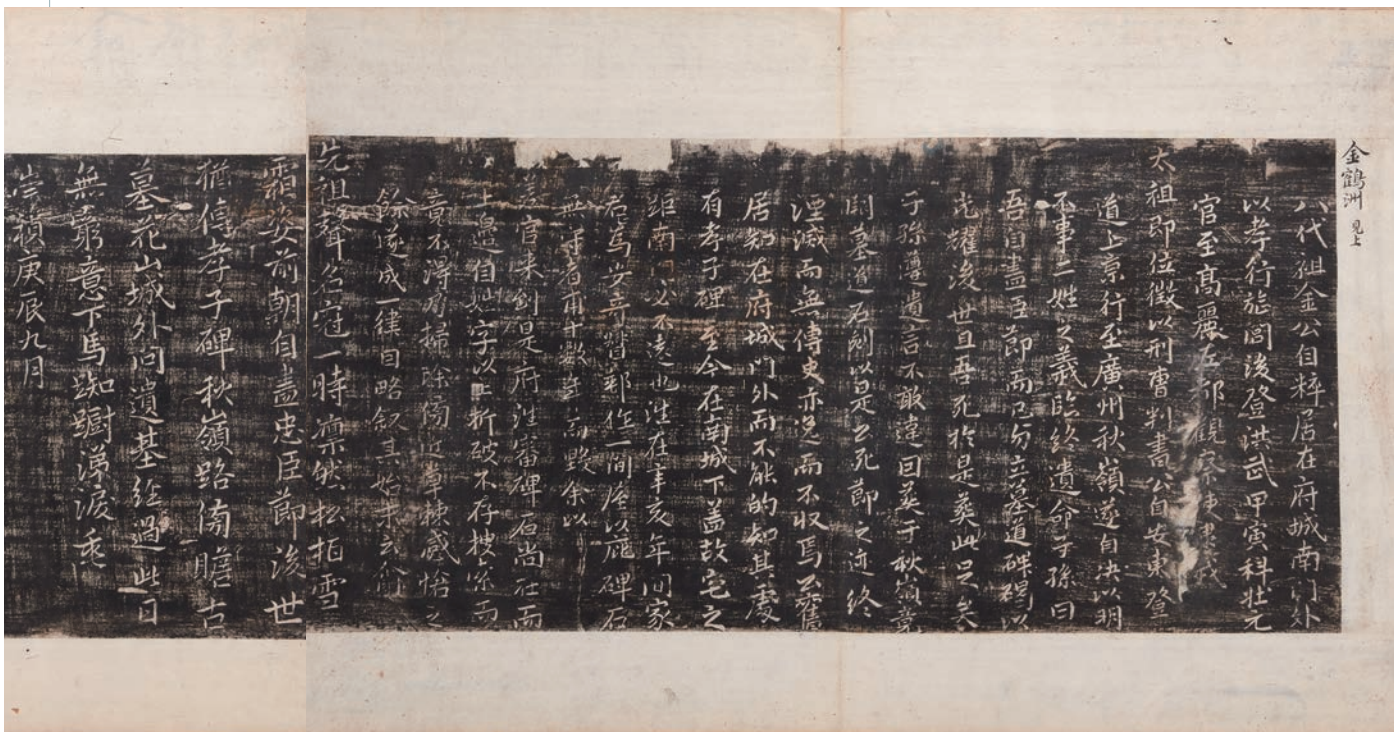 金鶴洲 見上
八代祖金公自粹居在府城南門外
以孝行旌閭後登洪武甲寅科壯元
官至高麗左 觀察使 我
太祖即位徵以刑曹判書公自安東登
道上京行至廣州秋嶺遂自决以明
不事二姓之義臨終遺命子孫曰
吾自盡臣節而已勿立墓道碑碣以
光耀後世且吾死於是葬此足矣
子孫遵遺言不敢違因葬于秋嶺竟
闕墓道石刻以是公死節之迹終
湮滅而無傳史亦逸而不収焉公舊
居 在府城門外而不能的知其處
有孝子碑至今在南城下盖故宅之
距南門必不遠也 在辛亥年間家
君爲安奇督郵作一間屋以庇碑石
無 者甫十數 而毀余以
官來到是府 審碑石尚在而
士邊自 字以上折破不存搜 而
竟不得 掃除傍近草棘感愴之
餘遂成一律自略敘其始末云爾
先祖聲名冠一時凛然松柏雪
霜姿前朝自盡忠臣節後世
猶傳孝子碑秋嶺路傍瞻古
墓花山城外問遺基經過此日
無窮意下馬踟躕涕淚垂
崇禎庚辰九月